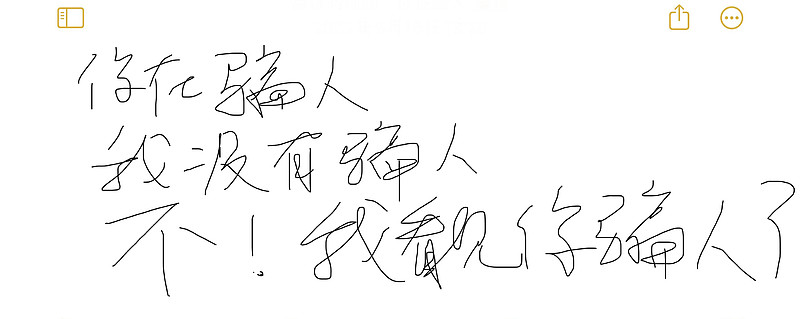 你在骗人
我没有骗人
不！我看见你骗人了